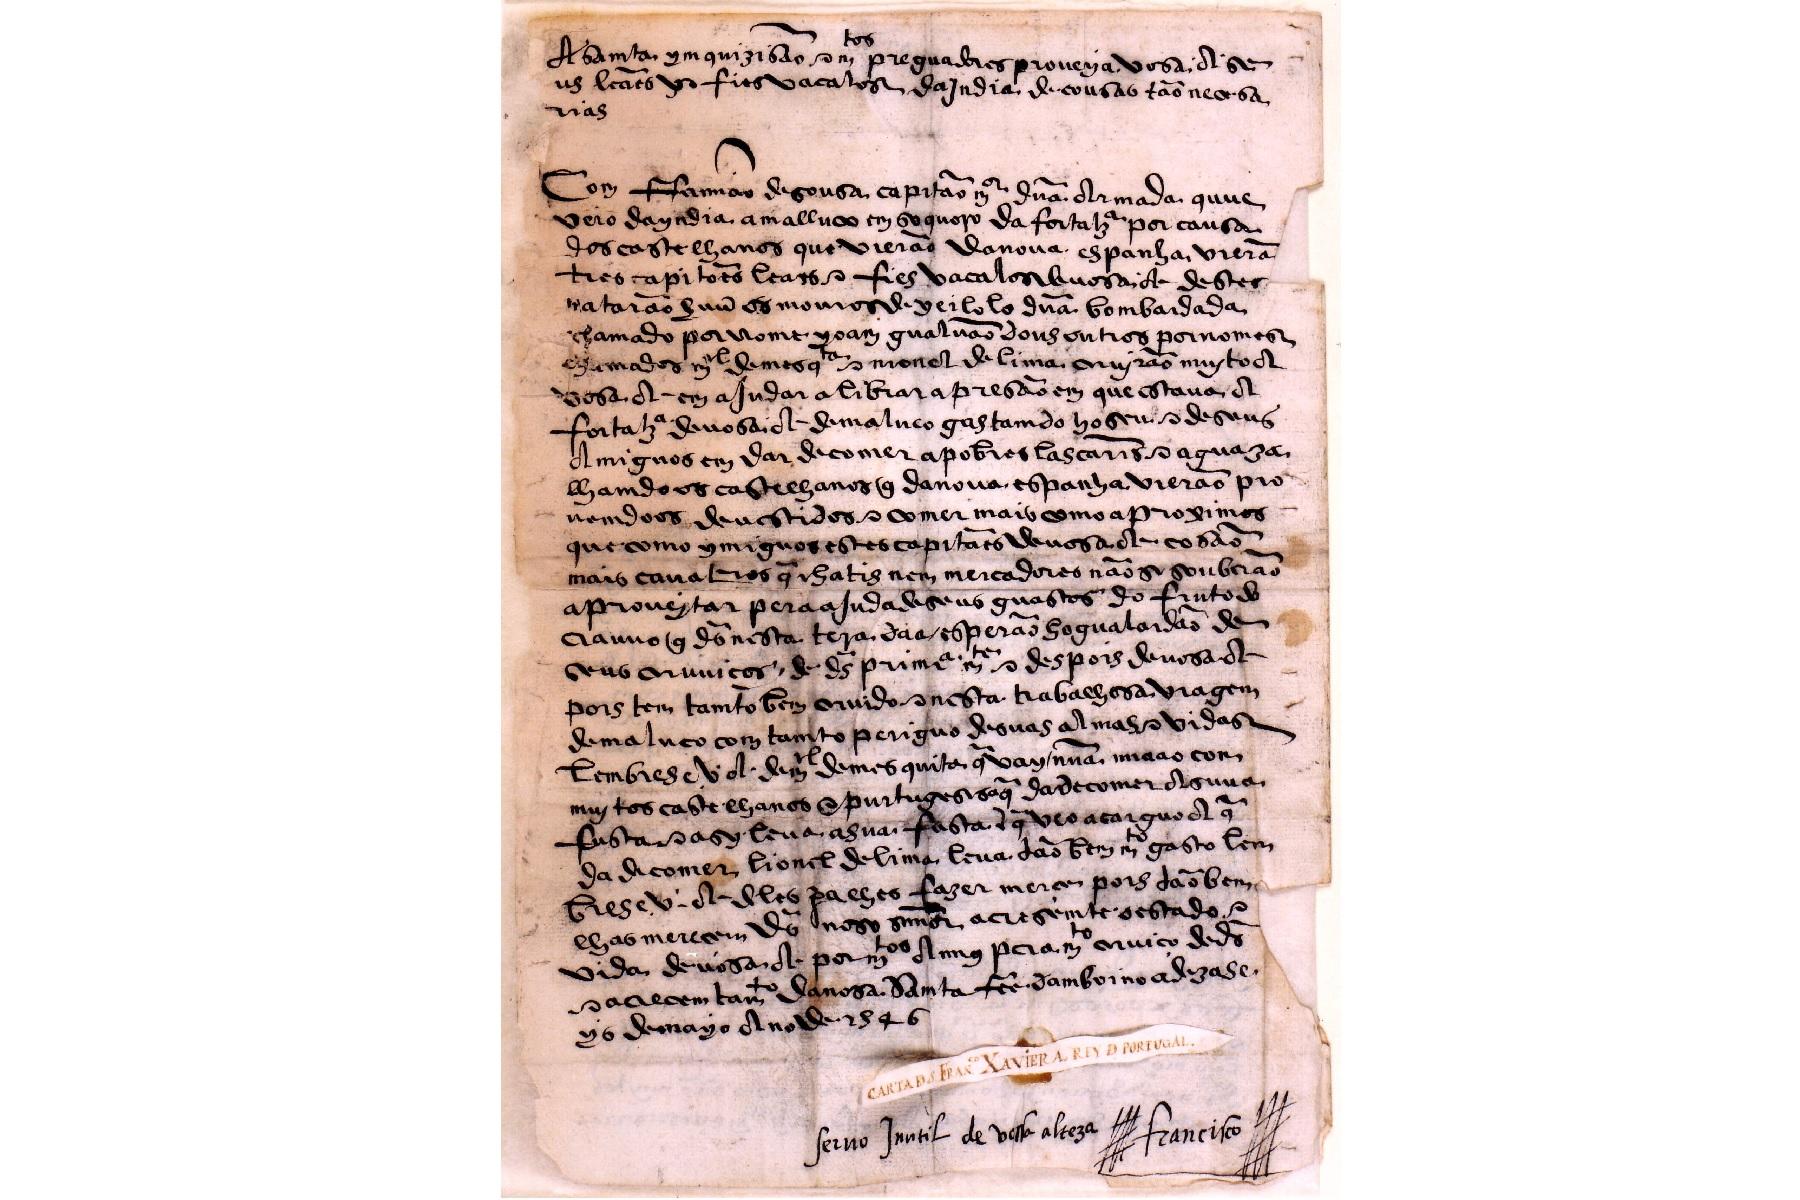 A samta ymquizisão e mtos preguadores proveya vosa A. se
us leaes e fies vacalos da Imdia de cousas tão necesa
rias
Com Fernão de sousa capitão mor dũa Armada quue
veio da yndia a malluco em soquoro da fortalza por causa
dos castelhanos que vierão da nova espanha vierã
tres capitães leaes e fies vacalos de vosa A. destes
matarão huũ os mouros de geilolo dũa bombardada
chamado per nome yoam gualvão dous outros per nomes
chamados mel de mesqta e lionel de lima servirão muyto A
vosa A. em ajudar a librar a presão em que estava A
fortalza de vosa A. de maluco gastamdo ho seu e de seus
Amiguos em dar de comer a pobres lascaris e aguaza
lhamdo os castelhanos q da nova espanha vierão pro
vemdoos de vestidos e comer mais como a proximos
que como ymiguos estes capitães de vosa A. co são
mais cavaleiros q chatis nem mercadores não se souberão
aproveytar pera ajuda de seus guastos do fruto do
cravo q ds nesta tera daa esperão ho gualardão de
seus serviços de ds primeramte e despois de vosa A
pois tem tamto bem servido e nesta trabalhosa viagem
de maluco com tamto periguo de suas Almas e vidas
Lembrese V. A. de mel de mesquita q vay nũa nao com
muytos castelhanos e purtugeses a q da de comer A sua
fusta e asy leva a sua fusta q veo a carguo A q
da de comer lionel de lima leva tão bem mto gasto lem
brese V. A. deles pa lhes fazer merce pois tão bem
lhas merecem Ds noso smnor acresemte o estado e
vida de vosa A. per mtos Annos pera mto serviço de ds
e acrecemtamto da nosa samta fee damboino a dezase
ys de mayo Ano de 1546
CARTA D S. FRANco XAVIER A REY D PORTUGAL.
servo Inutil de vossa alteza Francisco